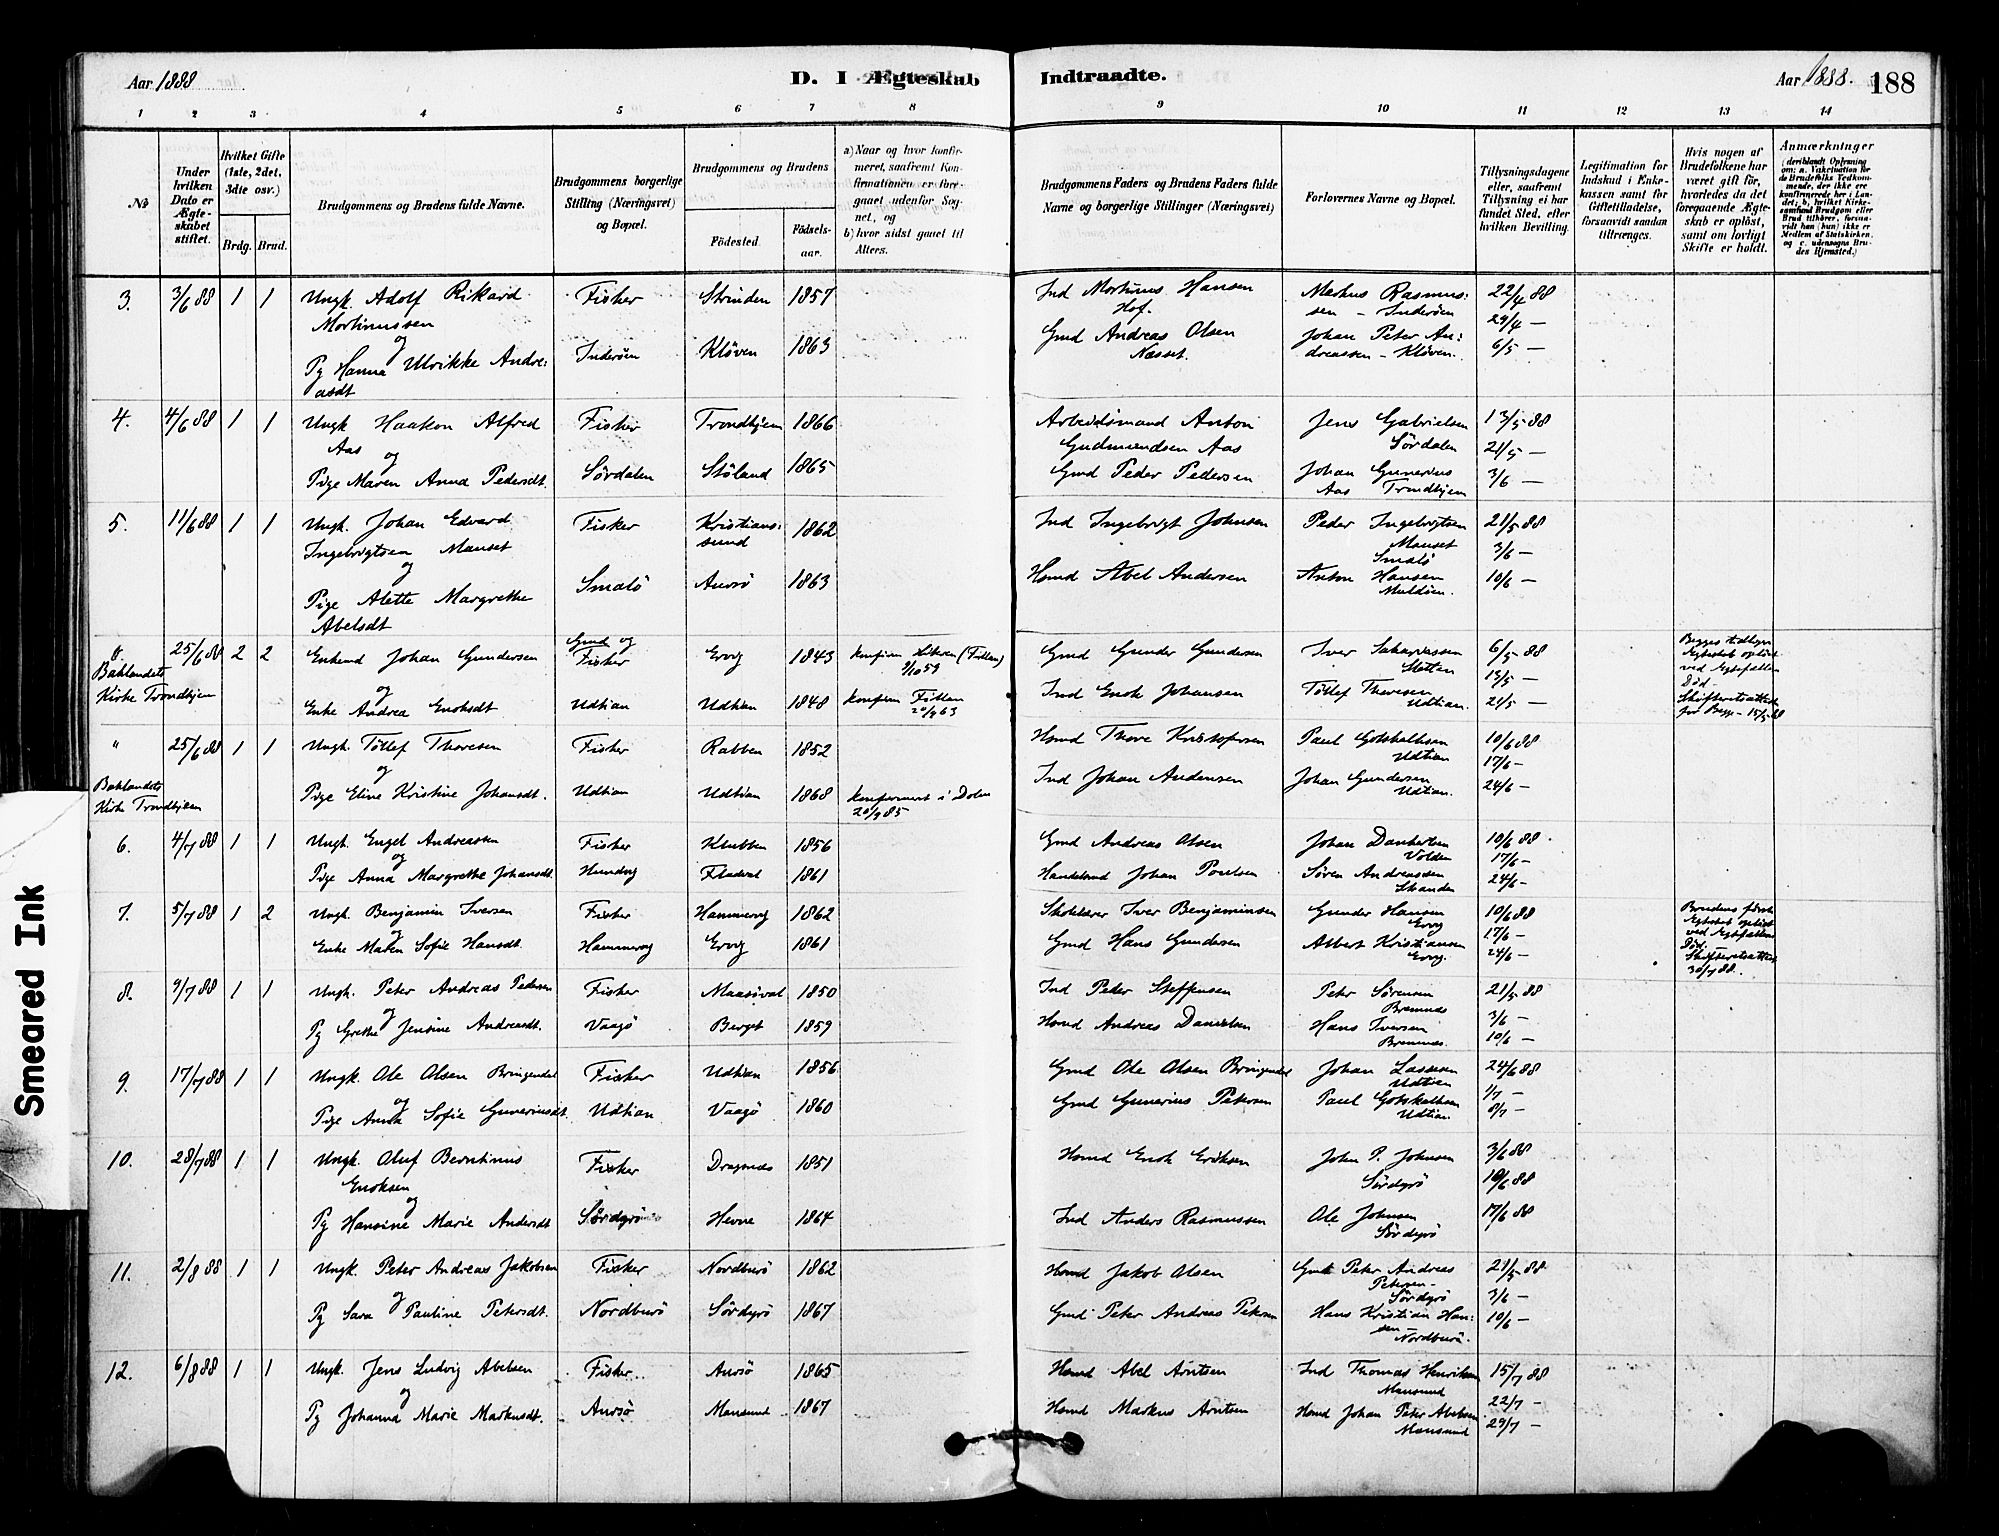 Aar 1888
D. I Ægteskab Indtraadte.
Aar 1888. 188
1 2 3 4 5 6 7 8 9 10 11 12 13 14
No
Under hvilken Dato er Ægteskabet stiftet.
Hvilket Gifte (1ste, 2det, 3dte osv.)
Brdg. Brud.
Brudgommens og Brudens fulde Navne.
Brudgommens borgerlige Stilling (Næringsvei) og Bopæl.
Brudgommens og Brudens
Födested. Födsels-aar.
a) Naar og hvor konfirmeret, saafremt Konfirmationen er foregaaet udenfor Sognet, og
b) hvor sidst gaaet til Alters.
Brudgommens Faders og Brudens Faders fulde Navne og borgerlige Stillinger (Næringsvei)
Forlovernes Navne og Bopæl.
Tillysningsdagene eller, saafremt Tillysning ei har fundet Sted, efter hvilken Bevilling.
Legitimation for Indskud i Enkekassen samt for Giftetilladelse, forsaavidt saadan tiltrænges.
Hvis nogen af Brudefolkene har været gift för, hvorledes da det foregaaende Ægteskab er oplöst, samt om lovligt Skifte er holdt.
Anmærkninger
3. 3/6 88 1 1 Ungk Adolf Rikard Fisker Strinden 1857 Ind Mortinus Hansen Markus Rasmus: 22/4 88
Mortinussen Hof. sen – Inderöen 29/4 –
og Gmd Andreas Olsen Johan Peter An: 6/5 –
Pg Hanna Ulrikke Andre: Inderöen Klöven 1863 Næsset. dreassen – Klöven.
asdt
4. 4/6 88 1 1 Ungk Haakon Alfred Fisker Trondhjem 1866 Arbeidsmand Anton Jens Gabrielsen 13/5 88
Aas og Gudmundsen Aas Sördalen 21/5 –
Pige Maren Anna Pedersdt. Sördalen Stöland 1865 Gmd Peder Pedersen Johan Gunerius 3/6 –
Aas Trondhjem
5. 11/6 88 1 1 Ungk. Johan Edvard Fisker Kristians: 1862 Ind Ingebrigt Johnsen Peder Ingebrigtsen 21/5 88
Ingebrigtsen Mauset sund Mauset 3/6 –
og Smalö
Pige Alette Margrethe Smalö Ausö 1863 Hsmd Abel Andersen Anton Hansen 10/6 –
Abelsdt Muldöen.
" 25/6 88 2 2 Enkemd Johan Gundersen Gmd og Fisker Ervg 1843 Konfirm (Fillan) Gmd Gunder Gundersen Iver 6/5 88 Begges
Baklandets 9/10 59 Sletten 13/5 – Egteskab oplöst
Kirke Trondhjem og ved Egtefællens Död –
Enke Andrea Enoksdt Udtian Udtian 1848 konfirm Fillan 20/9 63 Ind Enok Johansen Töllef Thoresen Udtian. 21/5 – for Begge – 15/5 88
" 25/6 88 1 1 Ungk. Töllef Thoresen Fisker Rabben 1852 Hsmd Thore Kristofersen Paul Gotskalksen 10/6 88
og Udtian 17/6 –
Baklandets Pige Eline Kristine Johansdt. Udtian Udtian 1868 konfirmeret i Dolm Ind Johan Andersen Johan Gundersen 24/6 –
Kirke Trondhjem 20/9 85 Udtian.
6. 4/7 88 1 1 Ungk. Engel Andreassen Fisker Klubben 1856 Gmd Andreas Olsen Johan 10/6 88.
og Volden 17/6 –
Pige Anna Margrethe Johansdt. Hundvg Fladval 1861 Handelsmd Johan Poulsen Sören Andreassen 24/6 –
Stranden
7. 5/7 88 1 2 Ungk. Benjamin Iversen Fisker Hammervg 1862 Skolelærer Iver Benjaminsen Gunder Hansen 10/6 88 Brudens förste
og Ervg 17/6 – Egteskab oplöst
Enke Maren Sofie Hansdt. Hammervg Ervg 1861 Gmd Hans Gundersen Albert Kristiansen 24/6 – ved Egtefællens Död. –
Ervg. 30/7 88.
8. 9/7 88 1 1 Ungk. Peter Andreas Pedersen Fisker Maasöval 1850 Ind Peder Steffensen Peter Sörensen 21/5 88
og Bremnes 3/6 –
Pg Grethe Jensine Andreasdt. Vaagö Berget 1859 Hsmd Andreas Danielsen Hans Iversen 10/6 –
Bremnes.
9. 17/7 88 1 1 Ungk. Ole Olsen Bringendal Fisker Udtian 1856 Gmd Ole Olsen Bringendal Johan Lassesen 24/6 88
og Udtian 1/7 –
Pige Anna Sofie Guneriusdt. Udtian Vaagö 1860 Gmd Gunerius Petersen Paul Gotskalksen 8/7 –
Udtian.
10. 28/7 88 1 1 Ungk. Oluf Berntinus Fisker Dragsnes 1851 Hsmd Enok Eriksen John P. Johnsen 3/6 88
Enoksen Sördyrö 10/6 88
og
Pg Hansine Marie Andersdt Sördyrö Hevne 1864 Ind Anders Rasmussen Ole Johnsen 17/6 88
Sördyrö
11. 2/8 88 1 1 Ungk. Peter Andreas Jakobsen Fisker Nordburö 1862 Hsmd Jakob Olsen Gmd Peter Andreas 21/5 88
og Petersen – Sördyrö 3/6 –
Pg Sara Pauline Petersdt. Nordburö Sördyrö 1867 Gmd Peter Andreas Petersen Hans Kristian Han: 10/6 –
sen – Nordburö.
12. 6/8 88 1 1 Ungk. Jens Ludvig Abelsen Fisker. Ausö 1865 Hsmd Abel Arntsen Ind Thomas Henriksen 15/7 88
og Mausund 22/7 –
Pg Johanna Marie Markusdt. Ausö Mausund 1867 Hsmd Markus Arntsen Hsmd Johan Peter Abelsen 29/7 –
Mausund
Smeared Ink